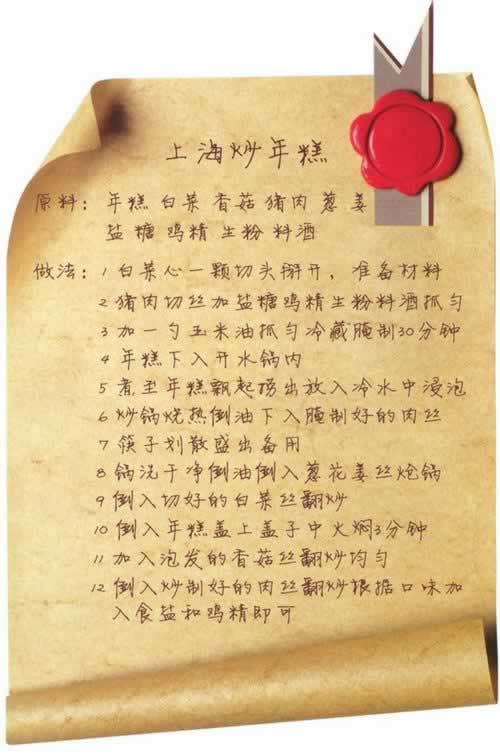 上海炒年糕
原料：年糕 白菜 香菇 猪肉 葱 姜
盐 糖 鸡精 生粉 料酒
做法：1 白菜心一颗切头掰开，准备材料
2 猪肉切丝加盐糖鸡精生粉料酒抓匀
3 加一勺玉米油抓匀冷藏腌制30分钟
4 年糕下入开水锅内
5 煮至年糕飘起捞出放入冷水中浸泡
6 炒锅烧热倒油下入腌制好的肉丝
7 筷子划散盛出备用
8 锅洗干净倒油倒入葱花姜丝炝锅
9 倒入切好的白菜丝翻炒
10 倒入年糕盖上盖子中火焖3分钟
11 加入泡发的香菇丝翻炒均匀
12 倒入炒制好的肉丝翻炒根据口味加
入食盐和鸡精即可